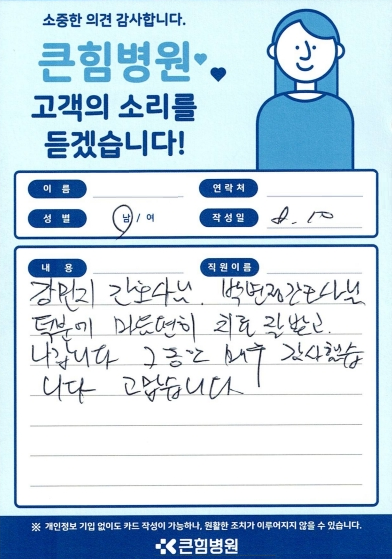 소중한 의견 감사합니다.
큰힘병원
고객의 소리를
듣겠습니다!
이 름
연락처
성 별 남 / 여
작성일 8. 10
내 용
직원이름
강민지 간호사님. 박현정간호사님
덕분에 마음편히 치료 잘받고
나갑니다 그동안 매우 감사했습
니다 고맙습니다
※ 개인정보 기입 없이도 카드 작성이 가능하나, 원활한 조치가 이루어지지 않을 수 있습니다.
큰힘병원